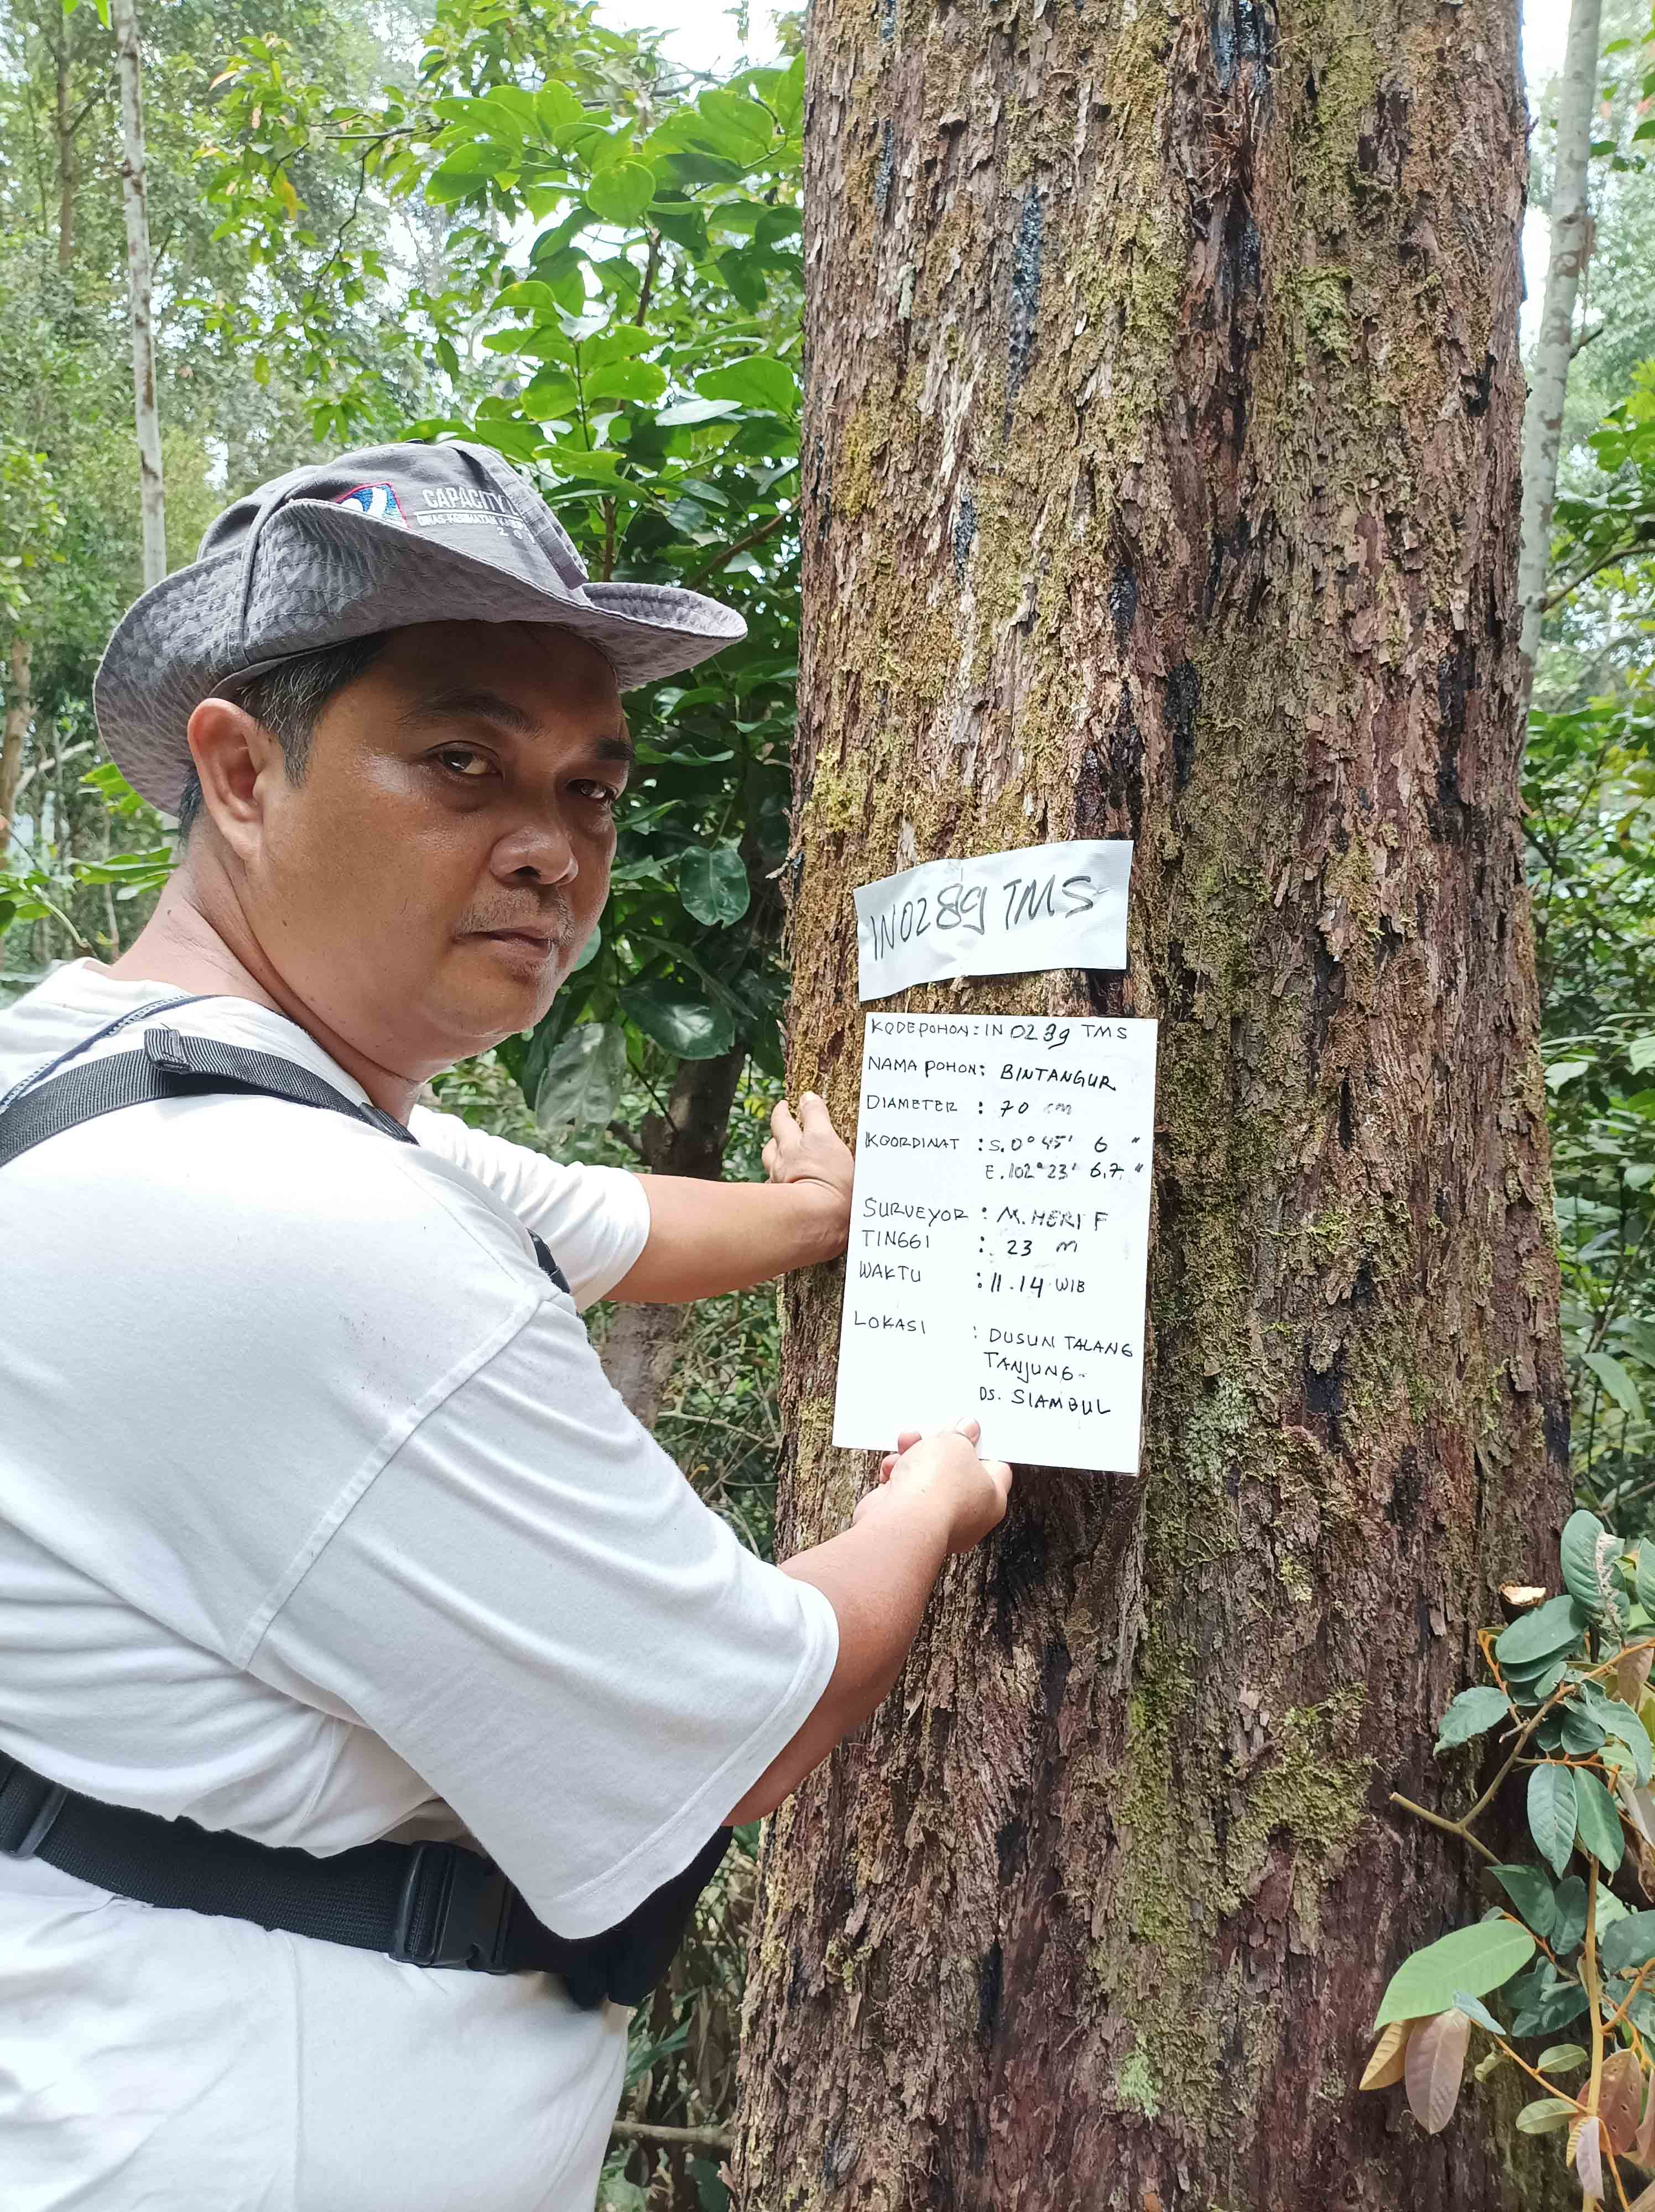 CAPACITY
DINAS KESEHATAN
IN0289 TMS
KODEPOHON : IN 0289 TMS
NAMA POHON : BINTANGUR
DIAMETER : 70 cm
KOORDINAT : S. 0° 45' 6 "
E. 102° 23' 6,7 "
SURVEYOR : M. HERI F
TINGGI : 23 m
WAKTU : 11.14 WIB
LOKASI : DUSUN TALANG
TANJUNG.
DS. SIAMBUL